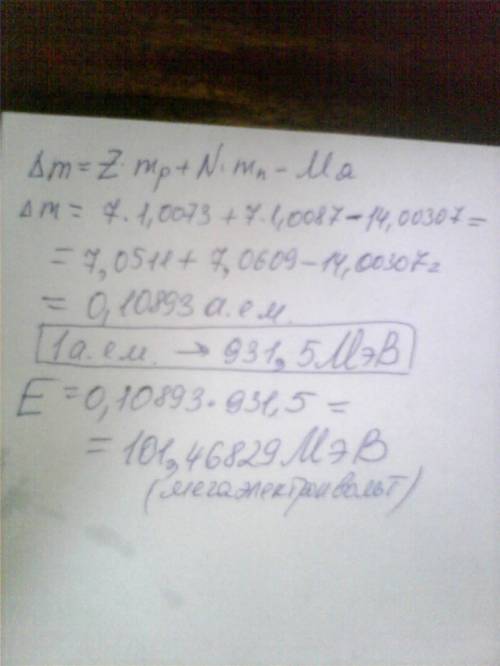 Δm = Z·mp + N·mn - Mя
Δm = 7·1,0073 + 7·1,0087 - 14,00307 =
= 7,0511 + 7,0609 - 14,00307 =
= 0,10893 а.ем.
1а.ем. → 931,5 МэВ
E = 0,10893·931,5 =
= 101,46829 МэВ
(мегаэлектронвольт)